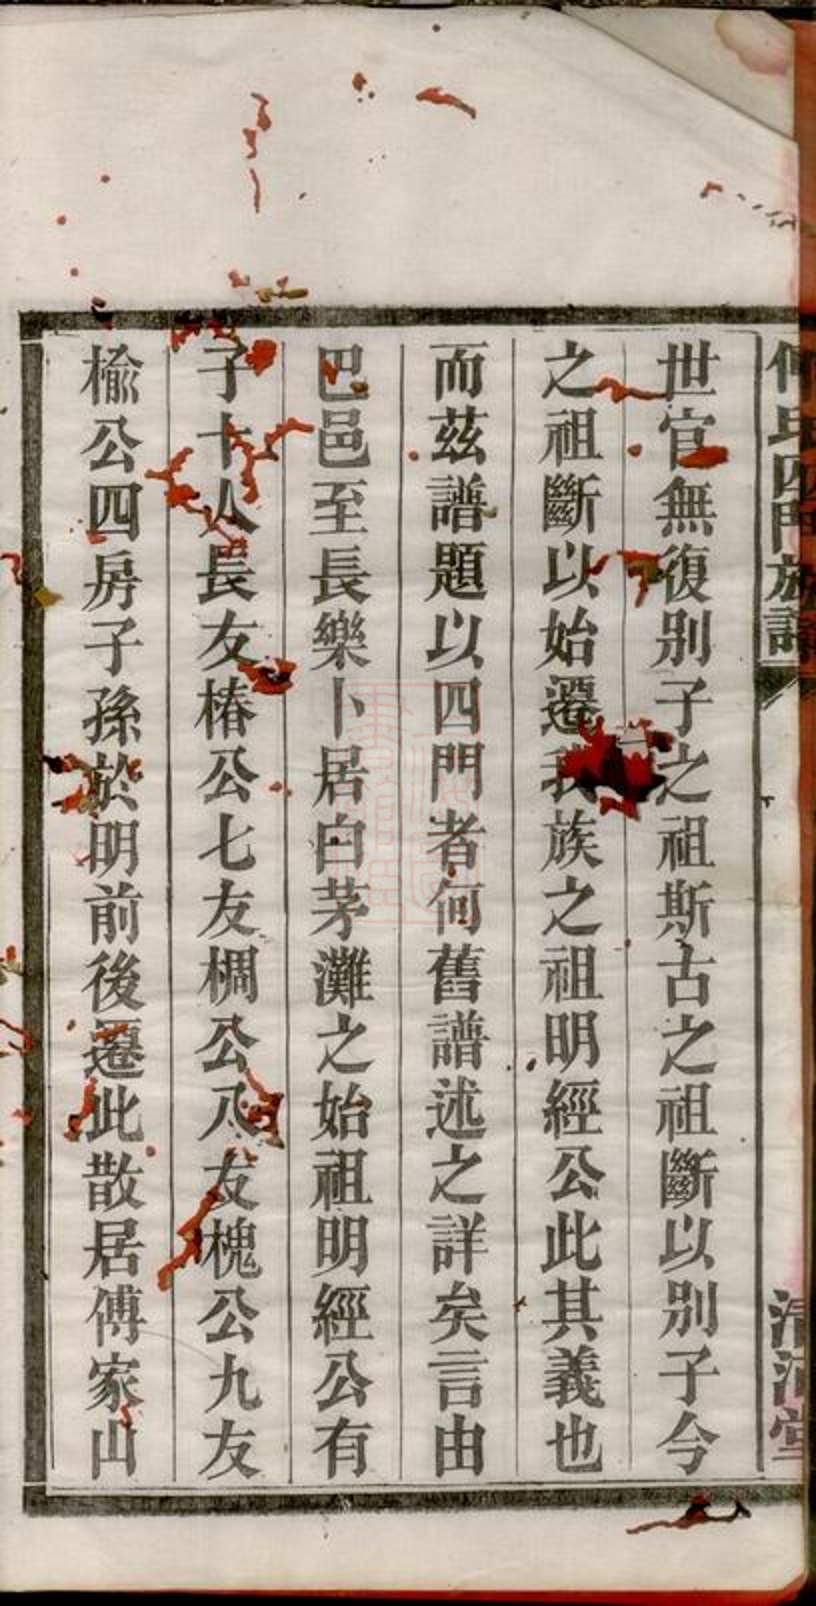 氏四門族譜
世官無復別子之祖斯古之祖斷以別子今
之祖斷以始遷我族之祖明經公此其義也
而茲譜題以四門者何舊譜述之詳矣言由
巴邑至長樂卜居白茅灘之始祖明經公有
子十人長友椿公七友椆公八友槐公九友
榆公四房子孫於明前後遷此散居傅家山